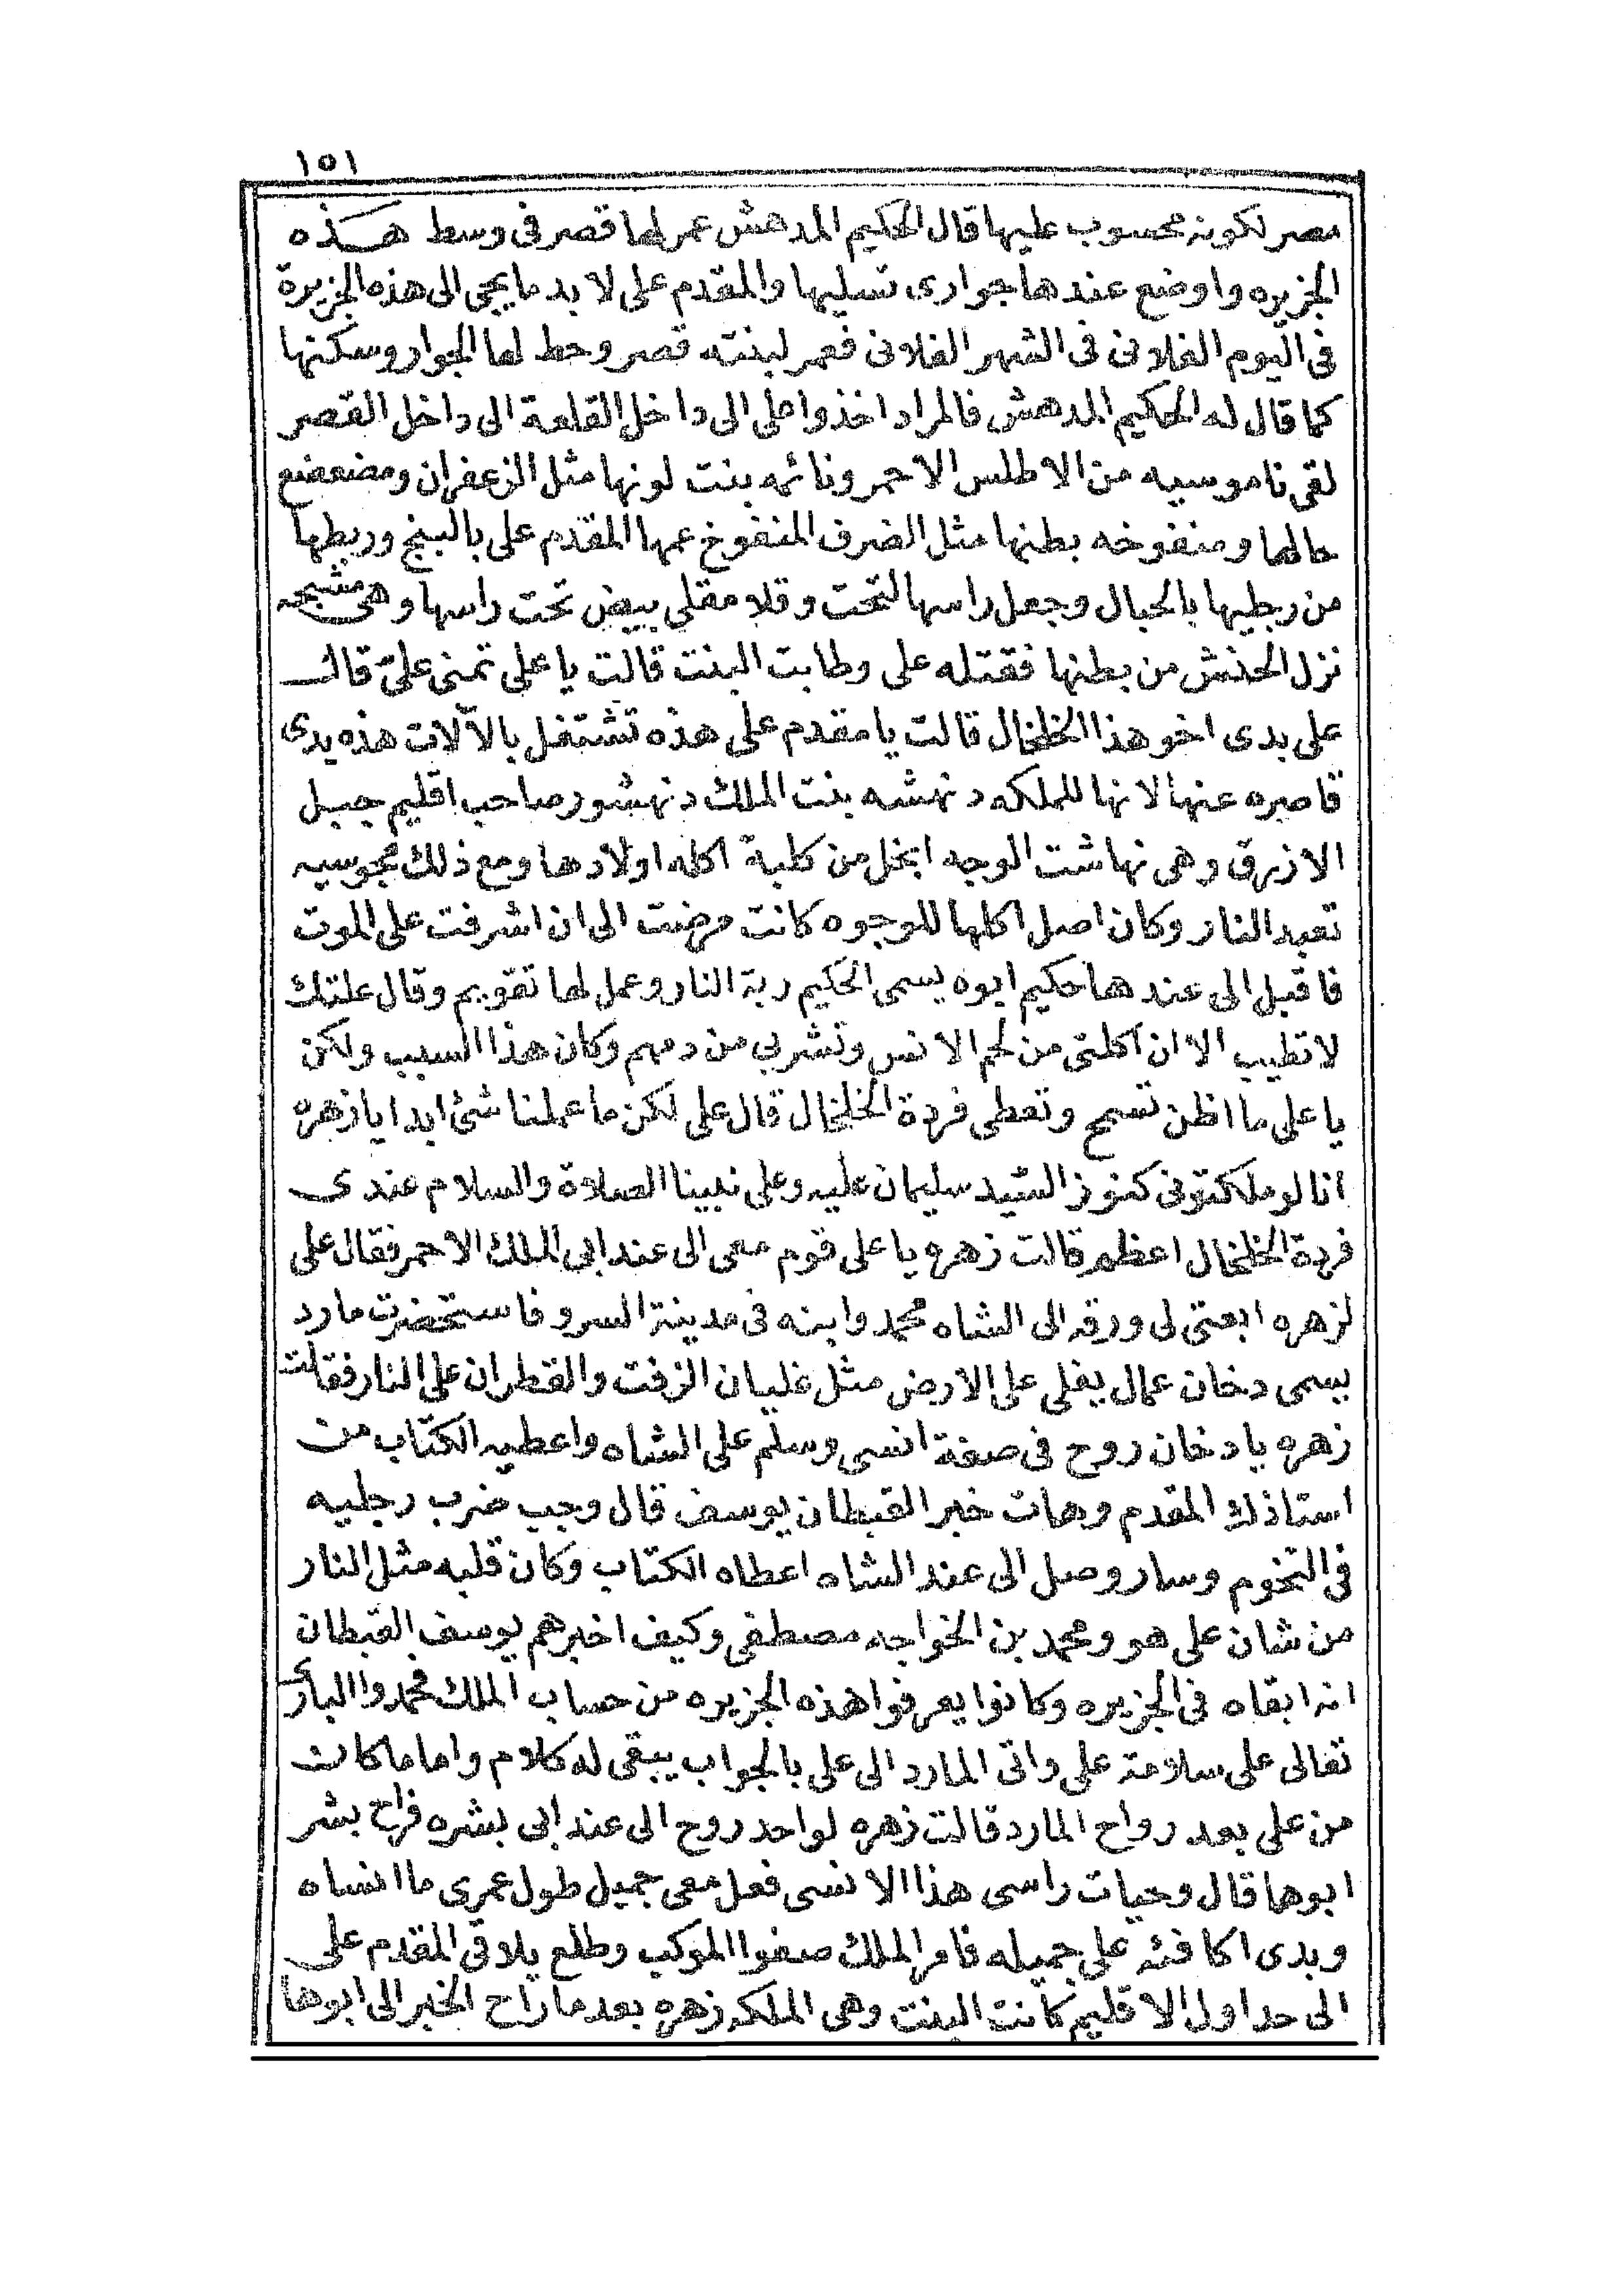 ١٥١
مصر لكونه محسوب عليها قال الحكيم المدهش عمر لها قصر فى وسط هذه
الجزيره واوضع عندها جوارى تسليها والمقدم على لا بد ما يجى الى هذه الجزيرة
فى اليوم الفلانى فى الشهر الفلانى فعمر لبنته قصر وحط لها الجوار وسكنها
كما قال له الحكيم المدهش فالمراد اخذوا على الى داخل القلعة الى داخل القصر
لقى ناموسيه من الاطلس الاحمر ونائمه بنت لونها مثل الزعفران ومضعضع
حالها ومنفوخه بطنها مثل الضرف المنفوخ عمها المقدم على بالبنج وربطها
من رجليها بالحبال وجعل راسها لتحت وقلا مقلى ببيض تحت راسها وهى مشبحه
نزل الحنش من بطنها فقتله على وطابت البنت قالت يا على تمنى علىّ قال
على بدى اخو هذا الخلخال قالت يا مقدم على هذه تشتغل بالآلات هذه يدى
قاصره عنها لانها للملكه دنهشه بنت الملك دنهشور صاحب اقليم جبل
الازرق وهى نهاشت الوجه ابخل من كلبة اكله اولادها ومع ذلك مجوسيه
تعبد النار وكان اصل اكلها للوجوه كانت مرضت الى ان اشرفت على الموت
فاقبل الى عندها حكيم ابوه يسمى الحكيم ربة النار وعمل لها تقويم وقال علتك
لا تطيب الا ان اكلتى من لحم الانس وتشربى من دمهم وكان هذا السبب ولكن
يا على ما اظن تسمح وتعطى فردة الخلخال قال على لكن ما عملنا شئ ابدا يا زهره
انا لو ملكتونى كنوز السّيد سليمان عليه وعلى نبينا الصلاة والسلام عندى
فردة الخلخال اعظم قالت زهره يا على قوم معى الى عند ابى الملك الاحمر فقال على
لزهره ابعتى لى ورقه الى الشاه محمد وابنه فى مدينة السرو فاستحضرت مارد
يسمى دخان عمال يغلى على الارض مثل غليان الزفت والقطران على النار فقالت
زهره يا دخان روح فى صفة انسى وسلّم على الشاه واعطيه الكتاب من
استاذك المقدم وهات خبر القبطان يوسف قال وجب ضرب رجليه
فى التخوم وسار وصل الى عند الشاه اعطاه الكتاب وكان قلبه مثل النار
من شان على هو ومحمد بن الخواجه مصطفى وكيف اخبرهم يوسف القبطان
انه ابقاه فى الجزيره وكانوا يعرفوا هذه الجزيره من حساب الملك محمد واالبارى
تعالى على سلامة على واتى المارد الى على بالجواب يبقى له كلام واما ما كان
من على بعد رواح المارد قالت زهره لواحد روح الى عند ابى بشره فراح بشر
ابوها قال وحيات راسى هذا الانسى فعل معى جميل طول عمرى ما انساه
وبدى اكافئه على جميله فامر الملك صفوا الموكب وطلع يلاقى المقدم على
الى حد اول الاقليم كانت البنت وهى الملكه زهره بعد ما راح الخبر الى ابوها